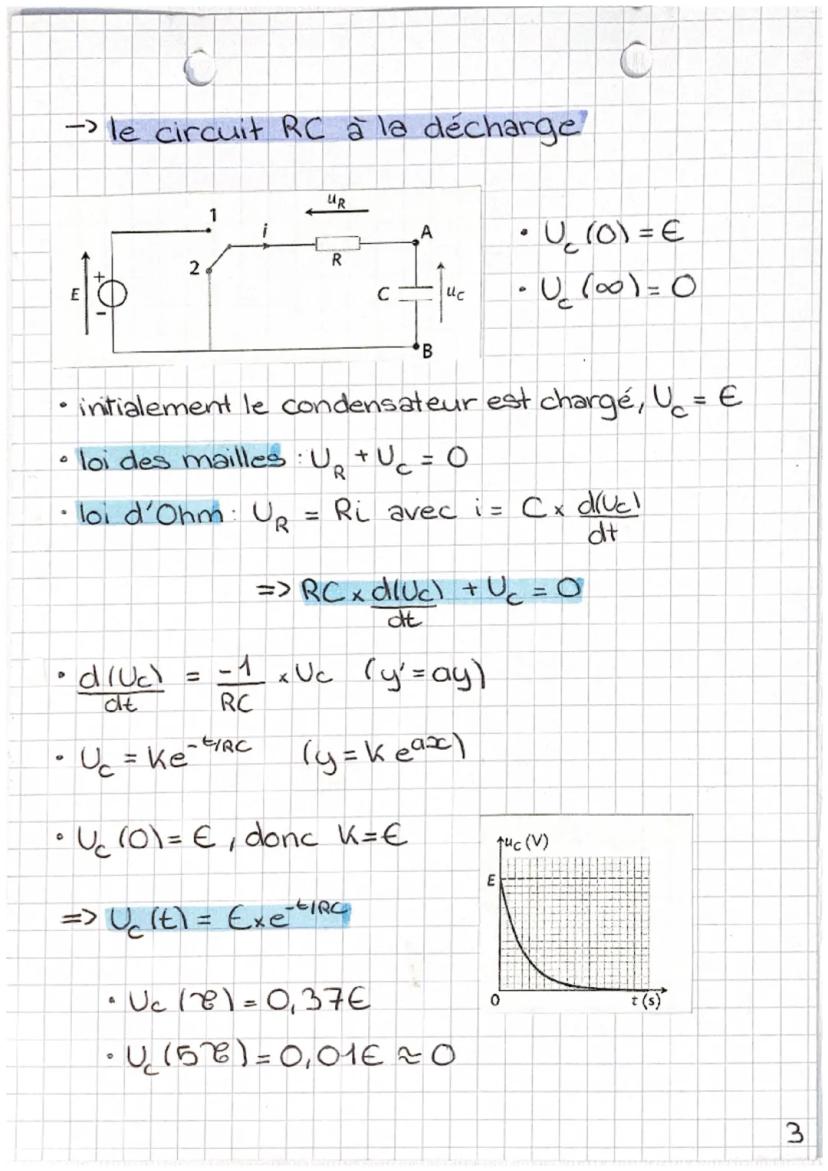 -> le circuit RC à la décharge
uR
1
i
A
2
R
E
+
-
C
uc
B
• Uc(0) = E
• Uc(∞) = 0
• intialement le condensateur est chargé, Uc = E
• loi des mailles : UR + Uc = 0
• loi d'Ohm : UR = Ri avec i = C x d(Uc)/dt
=> RC x d(Uc)/dt + Uc = 0
• d(Uc)/dt = -1/RC x Uc (y' = ay)
• Uc = Ke^-t/RC (y = k e^ax)
• Uc(0) = E, donc K = E
=> Uc(t) = E x e^-t/RC
uc (V)
E
0
t (s)
• Uc(τ) = 0,37E
• Uc(5τ) = 0,01E ≈ 0
3